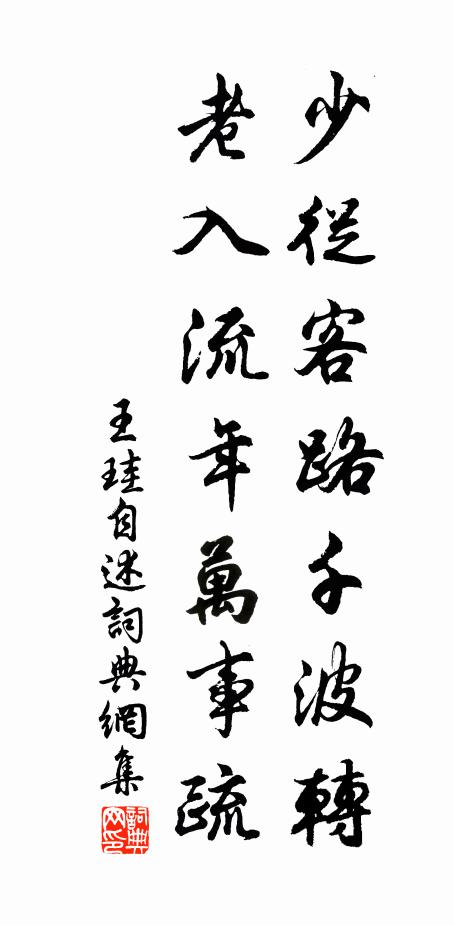 少從客路千波轉
老入流年萬事疏
王珪自述詞典網集
詞典
网印